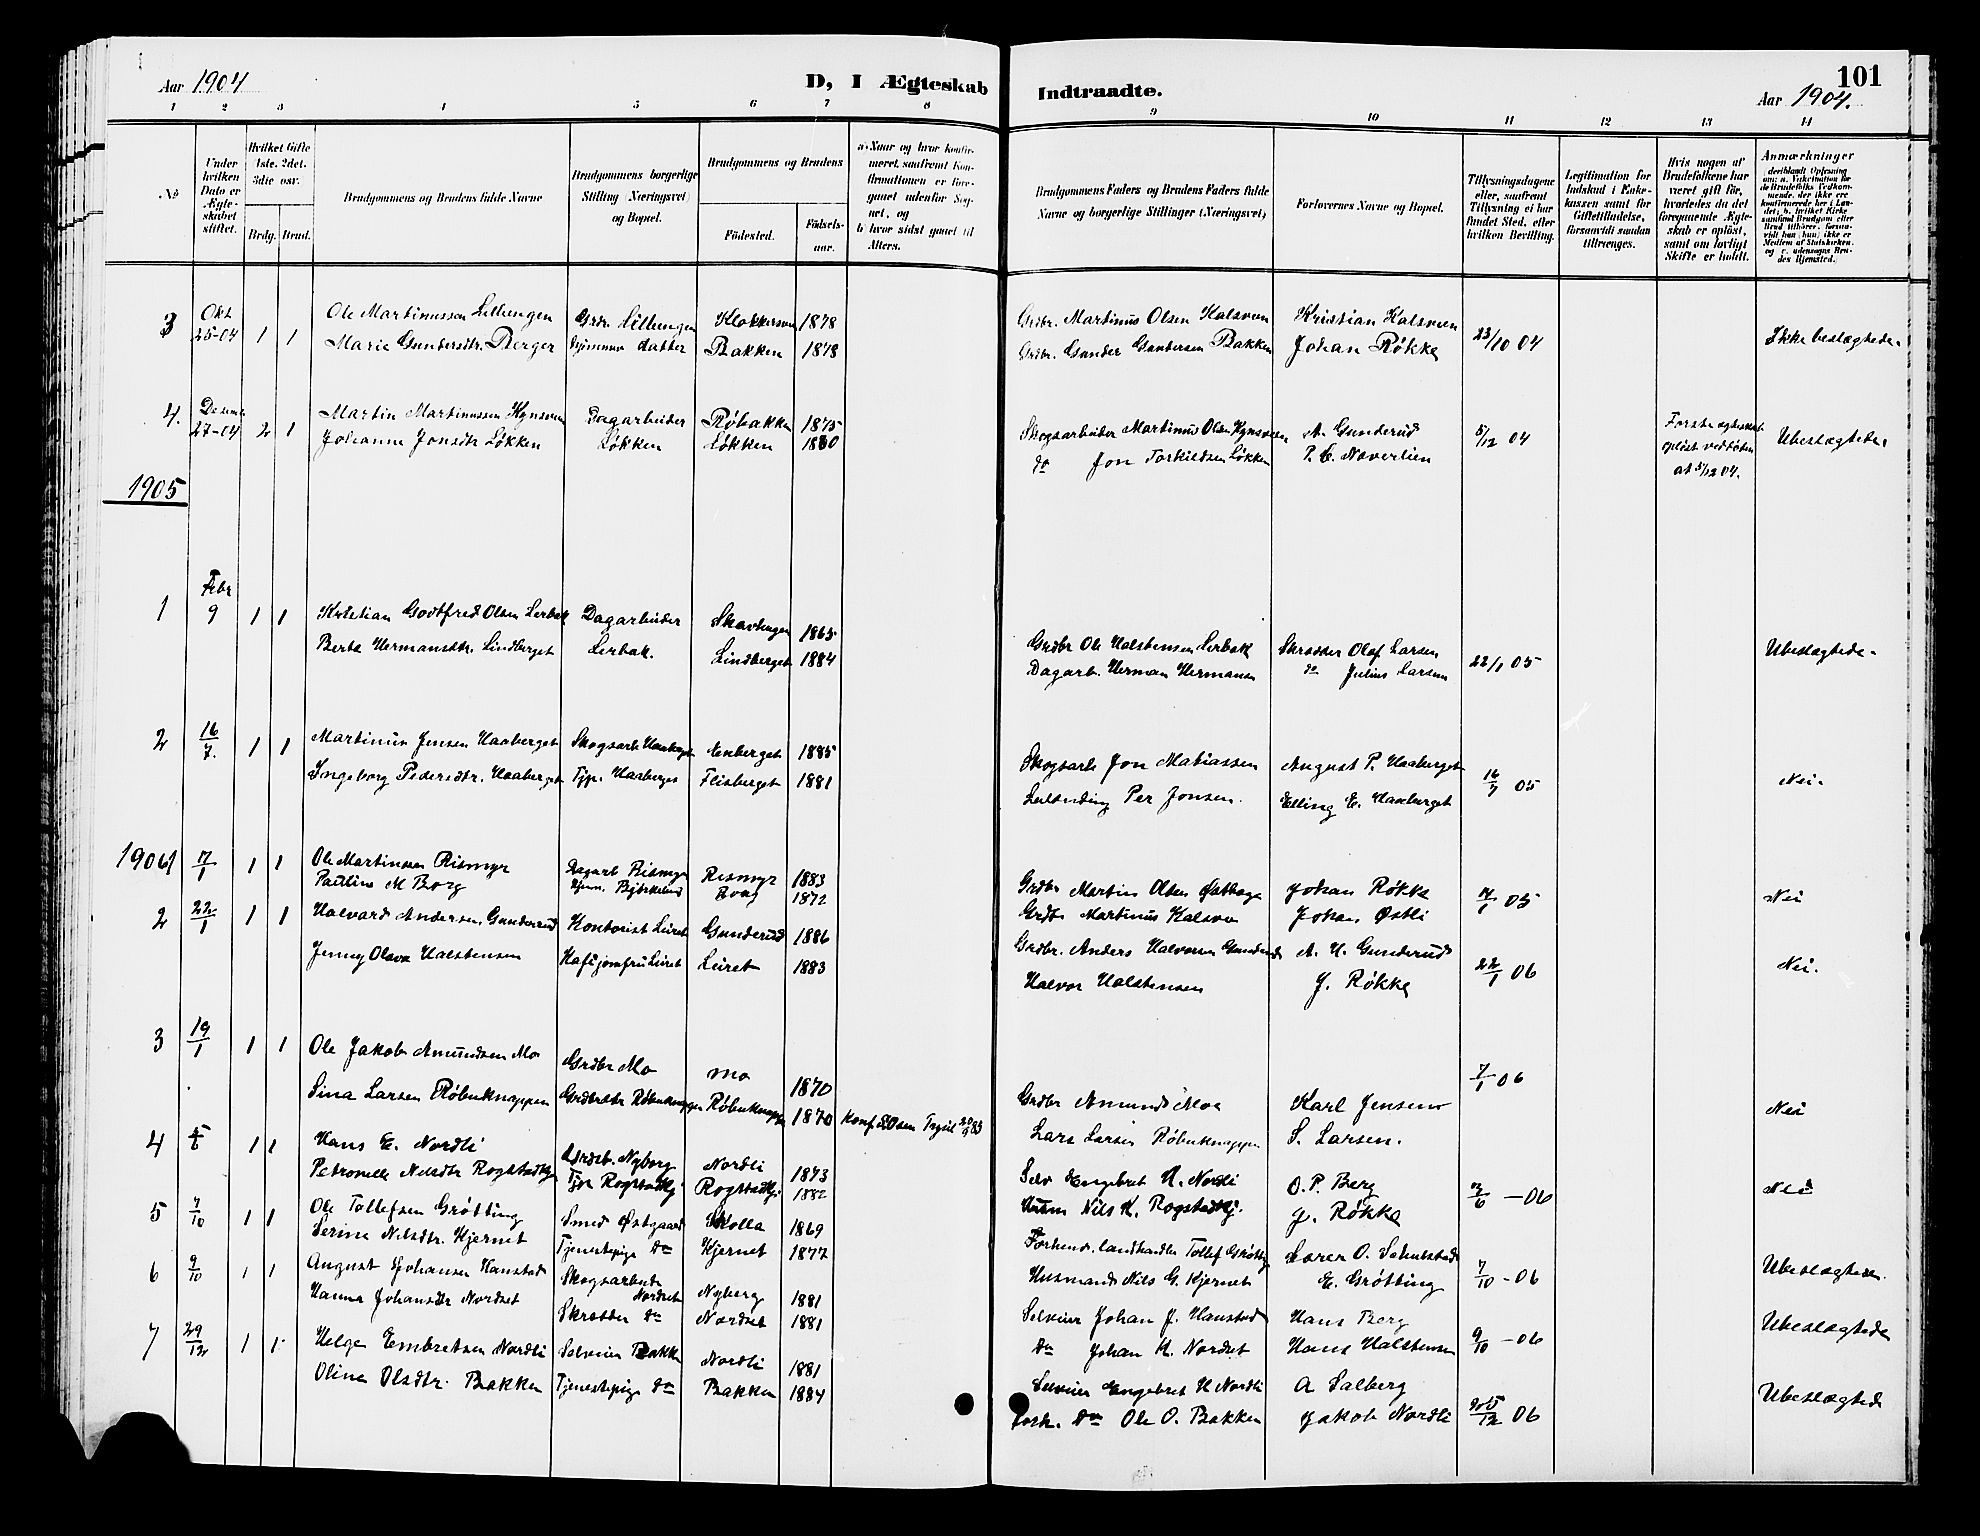 Aar 1904
D, I Ægteskab
Indtraadte.
101
Aar 1904.
1 2 3 4 5 6 7 8 9 10 11 12 13 14
№
Under hvilken Dato er Ægteskabet stiftet.
Hvilket Gifte 1ste, 2det, 3die osv.
Brdg. Brud.
Brudgommens og Brudens fulde Navne
Brudgommens borgerlige Stilling (Næringsvei) og Bopæl.
Brudgommens og Brudens
Födested.
Födselsaar.
a. Naar og hvor konfirmeret, saafremt Konfirmationen er foregaaet udenfor Sognet, og
b. hvor sidst gaaet til Alters.
Brudgommens Faders og Brudens Faders fulde Navne og borgerlige Stillinger (Næringsvei)
Forlovernes Navne og Bopæl.
Tillysningsdagene eller, saafremt Tillysning ei har fundet Sted, efter hvilken Bevilling.
Legitimation for Indskud i Enkekassen samt for Giftetilladelse, forsaavidt saadan tiltrænges.
Hvis nogen af Brudefolkene har været gift för, hvorledes da det foregaaende Ægteskab er oplöst, samt om lovligt Skifte er holdt.
Anmærkninger
3 Okt 25-04 1 1 Ole Martinussen Lillengen Grdr. Lillengen 1878
Marie Gundersdtr. Berger datter Bakken 1878
Grdbr. Martinus Olsen Kalsveen Kristian Kalsveen 23/10 04 Ikke beslægtede.
Grdbr. Gunder Gundersen Bakken Johan Røkke
4. 27-04 2 1 Martin Martinussen Kynsveen Dagarbeider Røbakken 1875
Johanne Jonsdtr Løkken Løkken Løkken 1880
Skogsarbeider Martinus Olsen Kynsveen A. Gunderud 5/12 04 Ubeslægtede.
do Jon Torkildsen Løkken P. E. Næverlien
Første ægteskab
opløst ved døden
1905
1 Febr 9 1 1 Kristian Godtfred Olsen Lerbak Dagarbeider 1865
Berte Hermansdtr. Lindberget Lerbak. Lindberget 1884
Grdbr Ole Halstensen Lerbak Skrædder Olaf Larsen 22/1 05 Ubeslægtede.
Dagarb. Herman Hermansen do Julius Larsen
2 16/7. 1 1 Martinus Jensen Haaberget Skogsarb Haaberget 1885
Ingeborg Pedersdtr. Haaberget Tjp. Haaberget Flisberget 1881
Skogsarb Jon Matiassen August P. Haaberget 16/7 05 Nei.
Per Jonsen. Elling E. Haaberget
1906 1 1 1 Ole Martinsen Rismyr Dagarb Rismyr Rismyr 1883
Pauline M Borg Borg 1872
Grdbr Martin Olsen Johan Røkke 05 Nei
Grdbr Martinus Kalsve Johan Østli
2 22/1 1 1 Halvard Andersen Gunderud Kontorist Leiret Gunderud 1886
Jenny Olava Halstensen Leiret Leiret 1883
Grdbr. Anders Halvorsen Gunderud A. H. Gunderud 22/1 06 Nei.
Halvor Halstensen J. Røkke
3 19/1 1 1 Ole Jakob Amundsen Mo Grdbr Mo Mo 1870
Sina Larsen Røbuknappen Grdbrdtr Røbuknappen Røbuknappen 1870 Konf. Trysil
Grdbr Amund Moe Karl Jensen 7/1 06 Nei
Lars Larsen Røbuknappen S. Larsen.
4 1 1 Hans E. Nordli Nyborg Nordli 1873
Petronelle Nilsdtr Rogstadkj. Tjp Rogstadkj Rogstadkj. 1882
Selv Engebret H. Nordli O. P. Berg 3/6 —06 Nei
Husm Nils K. Rogstadkj. J. Røkke
5 7/10 1 1 Ole Tollefsen Grøtting Smed Østgaard Skolla 1869
Serine Nilsdtr. Kjernet Tjenestepige do Kjernet 1877
Forhenv. landhandler Tollef Grøtting O. Schulstad 7/10 -06 Ubeslægtede.
Husmand Nils G. Kjernet E. Grøtting
6 9/10 1 1 August Johansen Hanstad Skogsarbeider Nordset Nyberg 1881
Hanna Johansdtr Nordset Skrædder do Nordset 1881
Selveier Johan J. Hanstad Hans Berg 9/10 -06 Ubeslægtede
do Johan H. Nordset Hans Halstensen
7 29/12 1 1 Helge Embretsen Nordli Selveier Bakken Nordli 1881
Oline Olsdtr. Bakken Tjenestepige do Bakken 1884
Selveier Engebret H Nordli A Salberg 06 Ubeslægtede
forh. do Ole O. Bakken Jakob Nordli